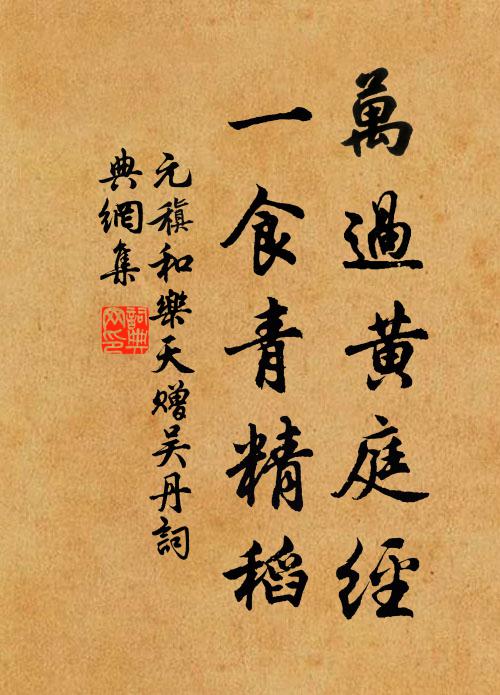 萬過黃庭經
一食青精稻
元稹和樂天贈吴丹詞
典網集
詞典
网印